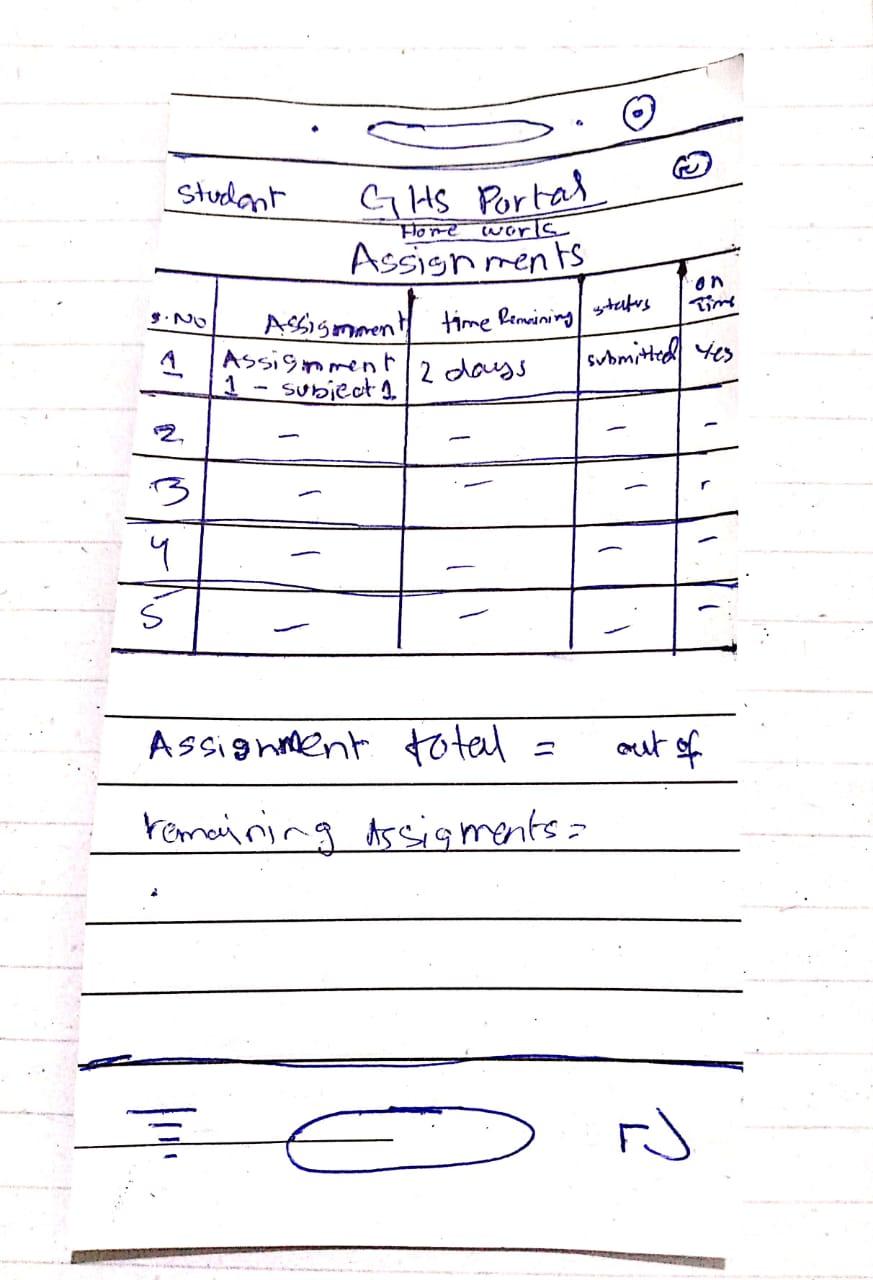 Student GHS Portal
Home work
Assignments
S.No Assignment time Remaining status on Time
1 Assignment 1 - subject 1 2 days submitted Yes
2 - - - -
3 - - -
4 - - - -
5 - - - -
Assignment total = out of
remaining Assigments =